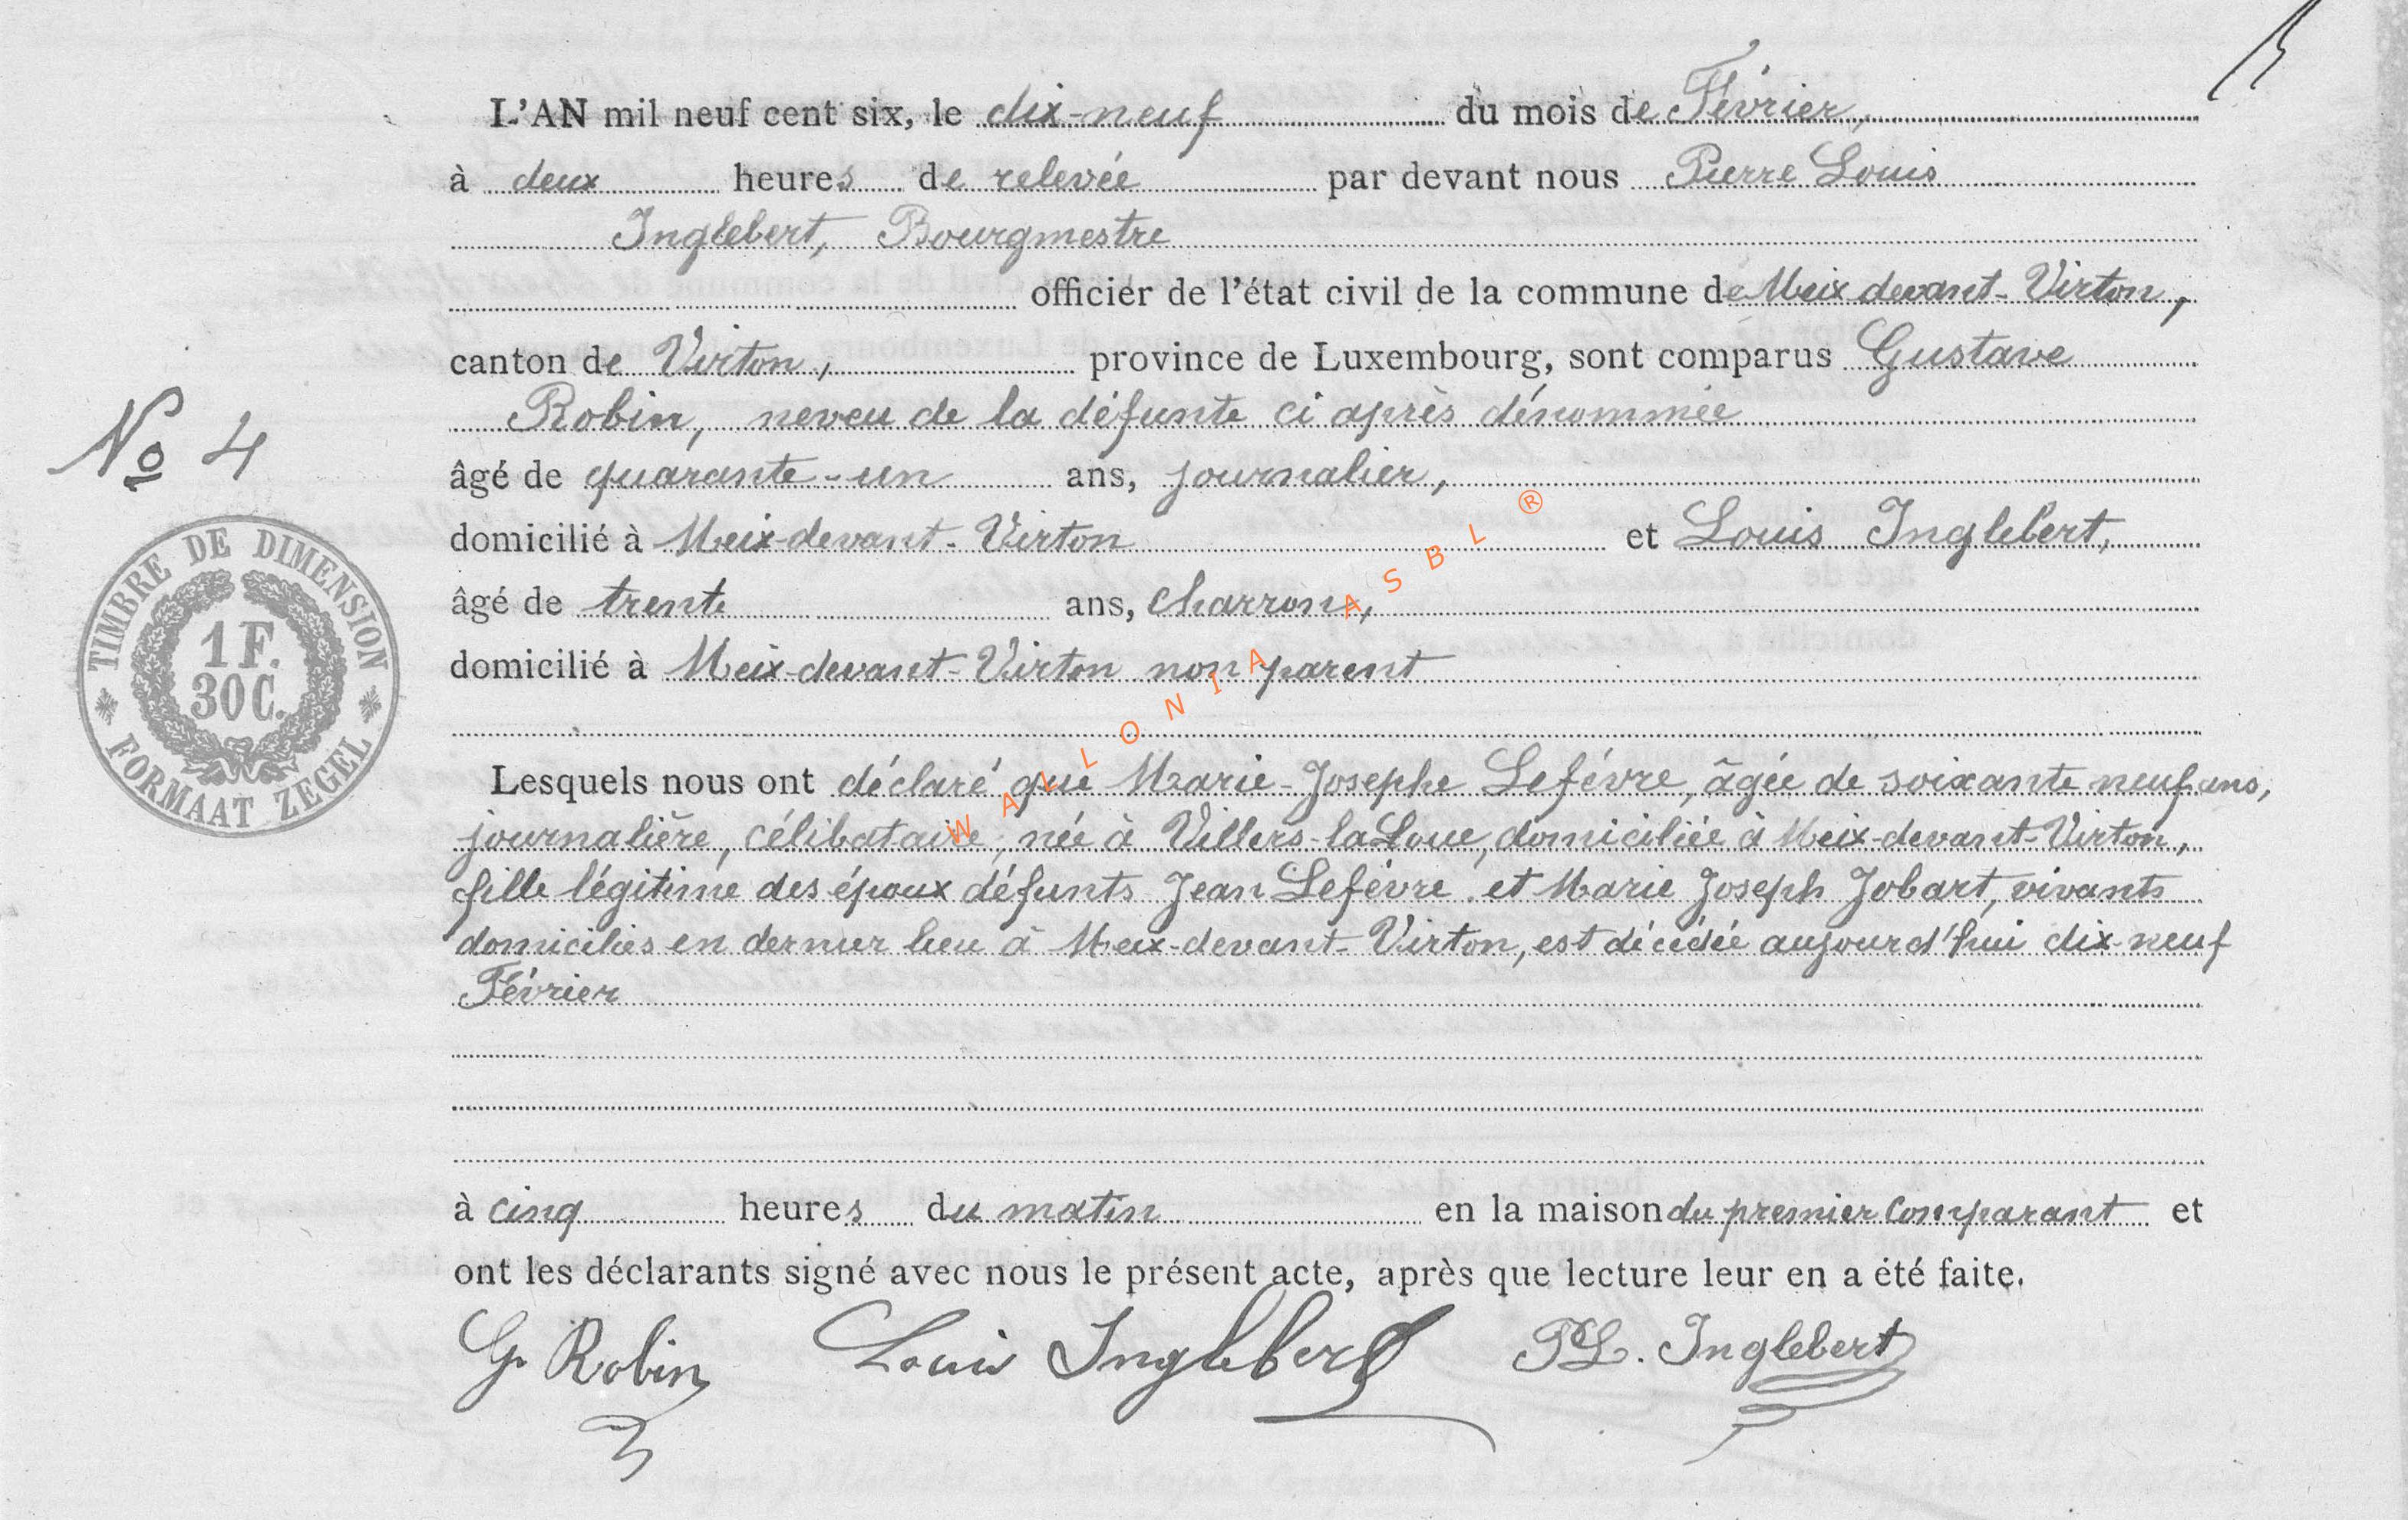 L'AN mil neuf cent six, le dix-neuf du mois de Février,
à deux heures de relevée par devant nous Pierre Louis
Inglebert, Bourgmestre
officier de l'état civil de la commune de Meix devant-Virton,
canton de Virton, province de Luxembourg, sont comparus Gustave
Robin, neveu de la défunte ci après dénommée
No 4
âgé de quarante-un ans, journalier,
domicilié à Meix-devant-Virton et Louis Inglebert,
âgé de trente ans, charron,
domicilié à Meix-devant-Virton non parent
TIMBRE DE DIMENSION
1 F.
30 C.
FORMAAT ZEGEL
WALLONIA ASBL ®
Lesquels nous ont déclaré que Marie-Josephe Lefévre, âgée de soixante neuf ans,
journalière, célibataire, née à Villers-la Loue, domiciliée à Meix-devant-Virton,
fille légitime des époux défunts Jean Lefévre et Marie Joseph Jobart, vivants
domiciliés en dernier lieu à Meix-devant-Virton, est décédée aujourd'hui dix-neuf
Février
à cinq heures du matin en la maison du premier comparant et
ont les déclarants signé avec nous le présent acte, après que lecture leur en a été faite.
G. Robin Louis Inglebert PL. Inglebert